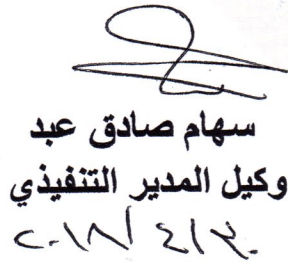 سهام صادق عبد
وكيل المدير التنفيذي
٢٠١٨/٤/٣٠